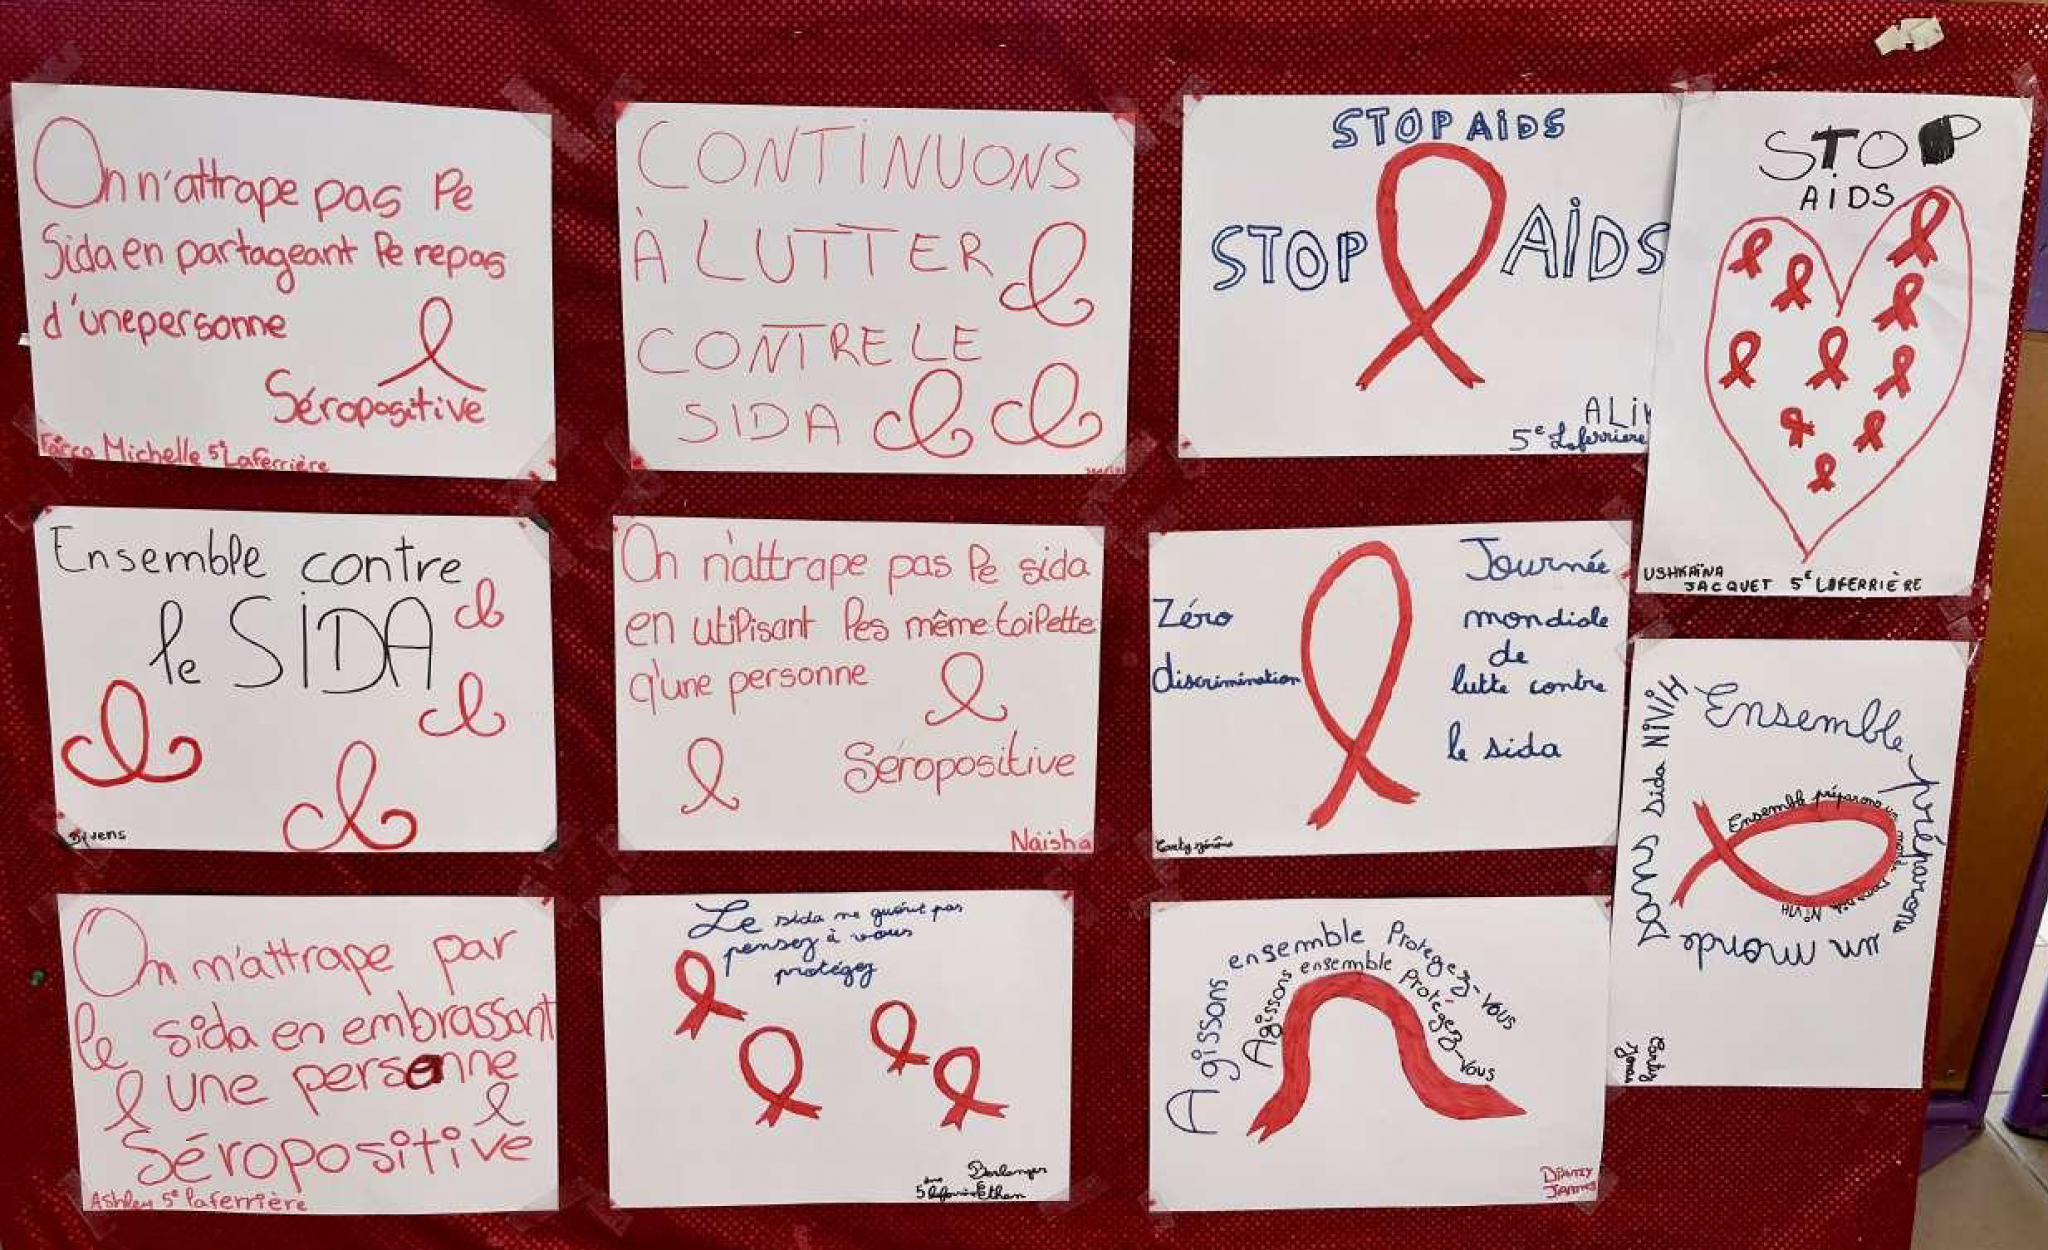 On n'attrape pas le
Sida en partageant le repas
d'une personne
Séropositive
Michelle 5e Laferrière
CONTINUONS
À LUTTER
CONTRE LE
SIDA
STOP AiDS
STOP AiDS
5e Laferrière
STOP
AiDS
USHKAÏNA
JACQUET 5e LAFERRIÈRE
Ensemble contre
le SIDA
On n'attrape pas le sida
en utilisant les même toilette
q'une personne
Séropositive
Naisha
Zéro
discrimination
Journée
mondiale
de
lutte contre
le sida
Ensemble préparons un monde sans sida Ni VIH
Ensemble préparons un
Ni VIH
On n'attrape par
le sida en embrassant
une personne
Séropositive
Ashley 5e laferrière
Le sida ne guérit pas
pensez à vous
protégez
Agissons ensemble Protegez-vous
Agissons ensemble protégez-vous